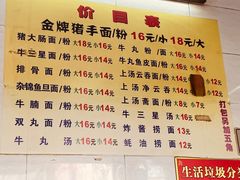 价目表
金牌猪手面/粉 16元/小 18元/大
猪大肠面/粉 大18元 小16元
牛三星面/粉 大16元 小14元
排骨面/粉 大16元 小14元
杂锦鱼旦面/粉 大16元 小14元
牛腩面/粉 大16元 小14元
双丸面/粉 大16元 小14元
牛丸 大16元 小14元
牛丸粉/面 大16元 小14元
牛丸鱼皮面/粉 大16元 小14元
上汤云吞面/粉 大14元 小12元
上汤净云吞 大14元 小12元
上汤斋面/粉
牛三星汤 大16元 小14元
炸酱捞面 大14元
蚝油捞面 大14元 小12元
打包另加五角
生活垃圾分